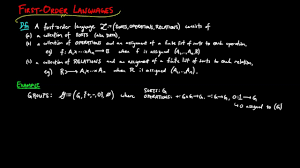 FIRST-ORDER LANGUAGES
Df A first-order language ℒ = (SORTS, OPERATIONS, RELATIONS) consists of
(a) a collection of SORTS (aka TYPES),
(b) a collection of OPERATIONS and an assignment of a finite list of sorts to each operation,
eg f: A₁×···×Aₙ → B when f is assigned (A₁,...,Aₙ,B)
(c) a collection of RELATIONS and an assignment of a finite list of sorts to each relation,
eg R ↣ A₁×···×Aₙ when R is assigned (A₁,...,Aₙ)
EXAMPLE
GROUPS: = (G, {+,-,0}, ∅) where SORTS: G
OPERATIONS: +: G×G→G, -: G→G, 0: 1→G
0 assigned to (G)